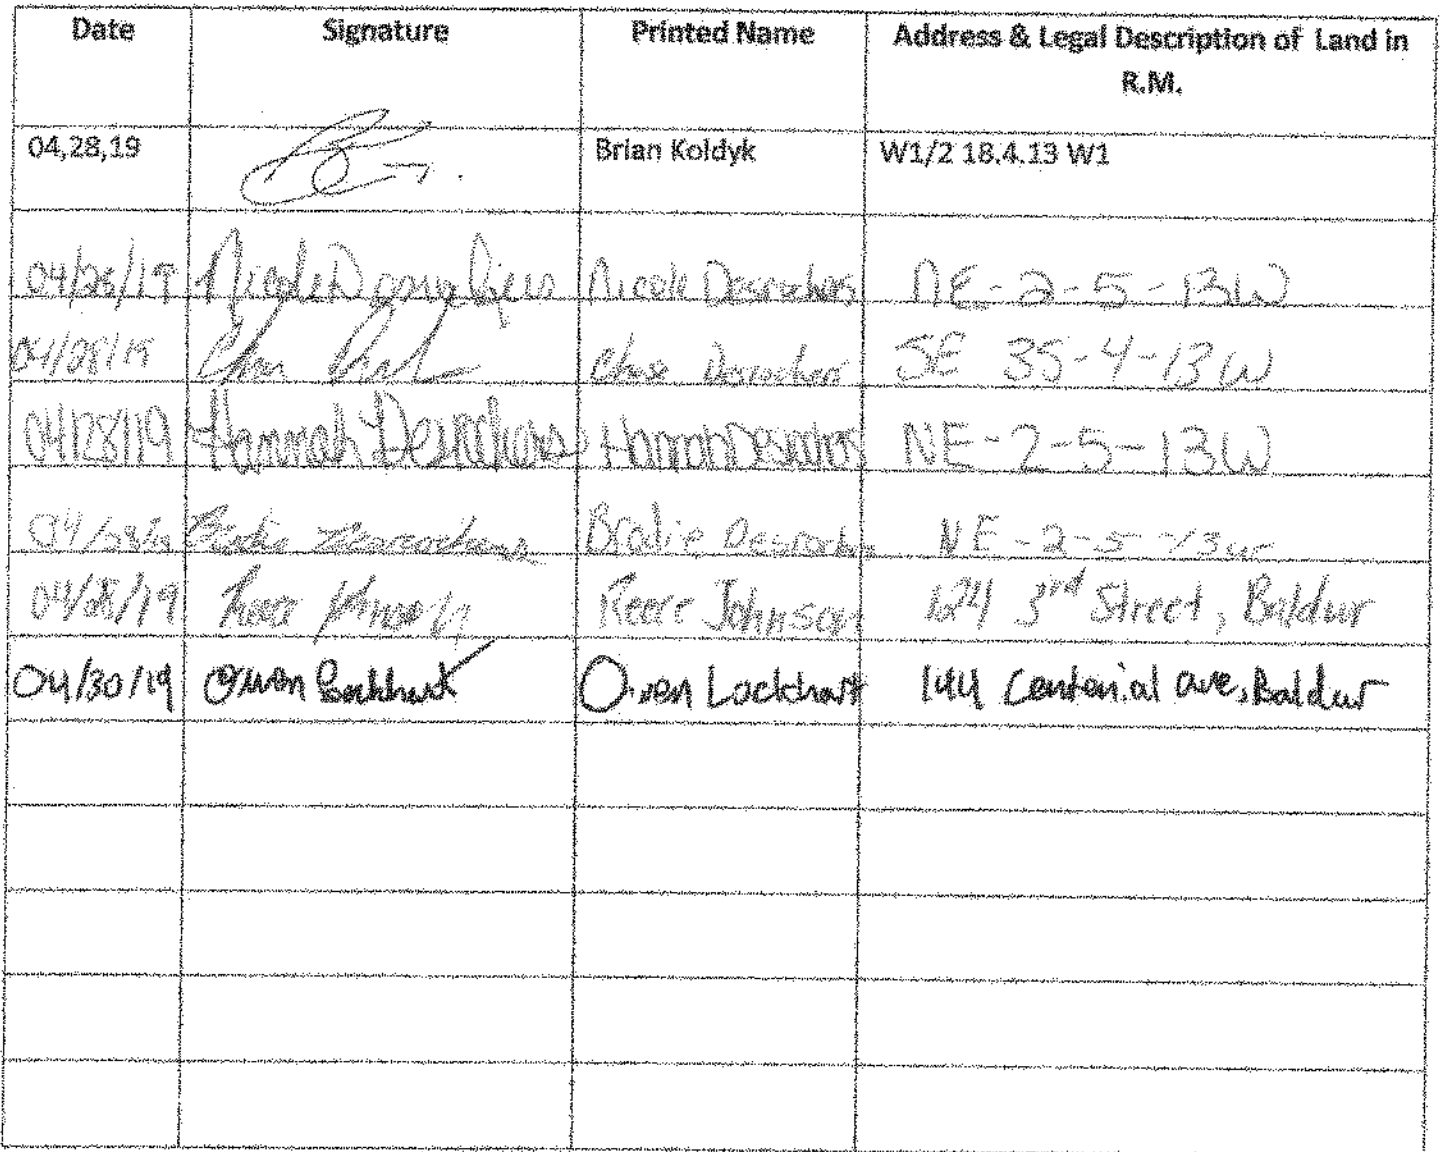 Date Signature Printed Name Address & Legal Description of Land in
R.M.
04,28,19 Brian Koldyk W1/2 18.4.13 W1
04/28/19 Nicole Desrochers NE-2-5-13W
04/28/19 Chase Desrochers SE 35-4-13W
04/28/19 Hannah Desrochers Hannah Desrochers NE-2-5-13W
04/28/19 Brodie Desrochers NE-2-5-13W
04/28/19 Reece Johnson Reece Johnson 624 3rd Street, Baldur
04/30/19 Owen Lockhart Owen Lockhart 144 Centenial ave, Baldur